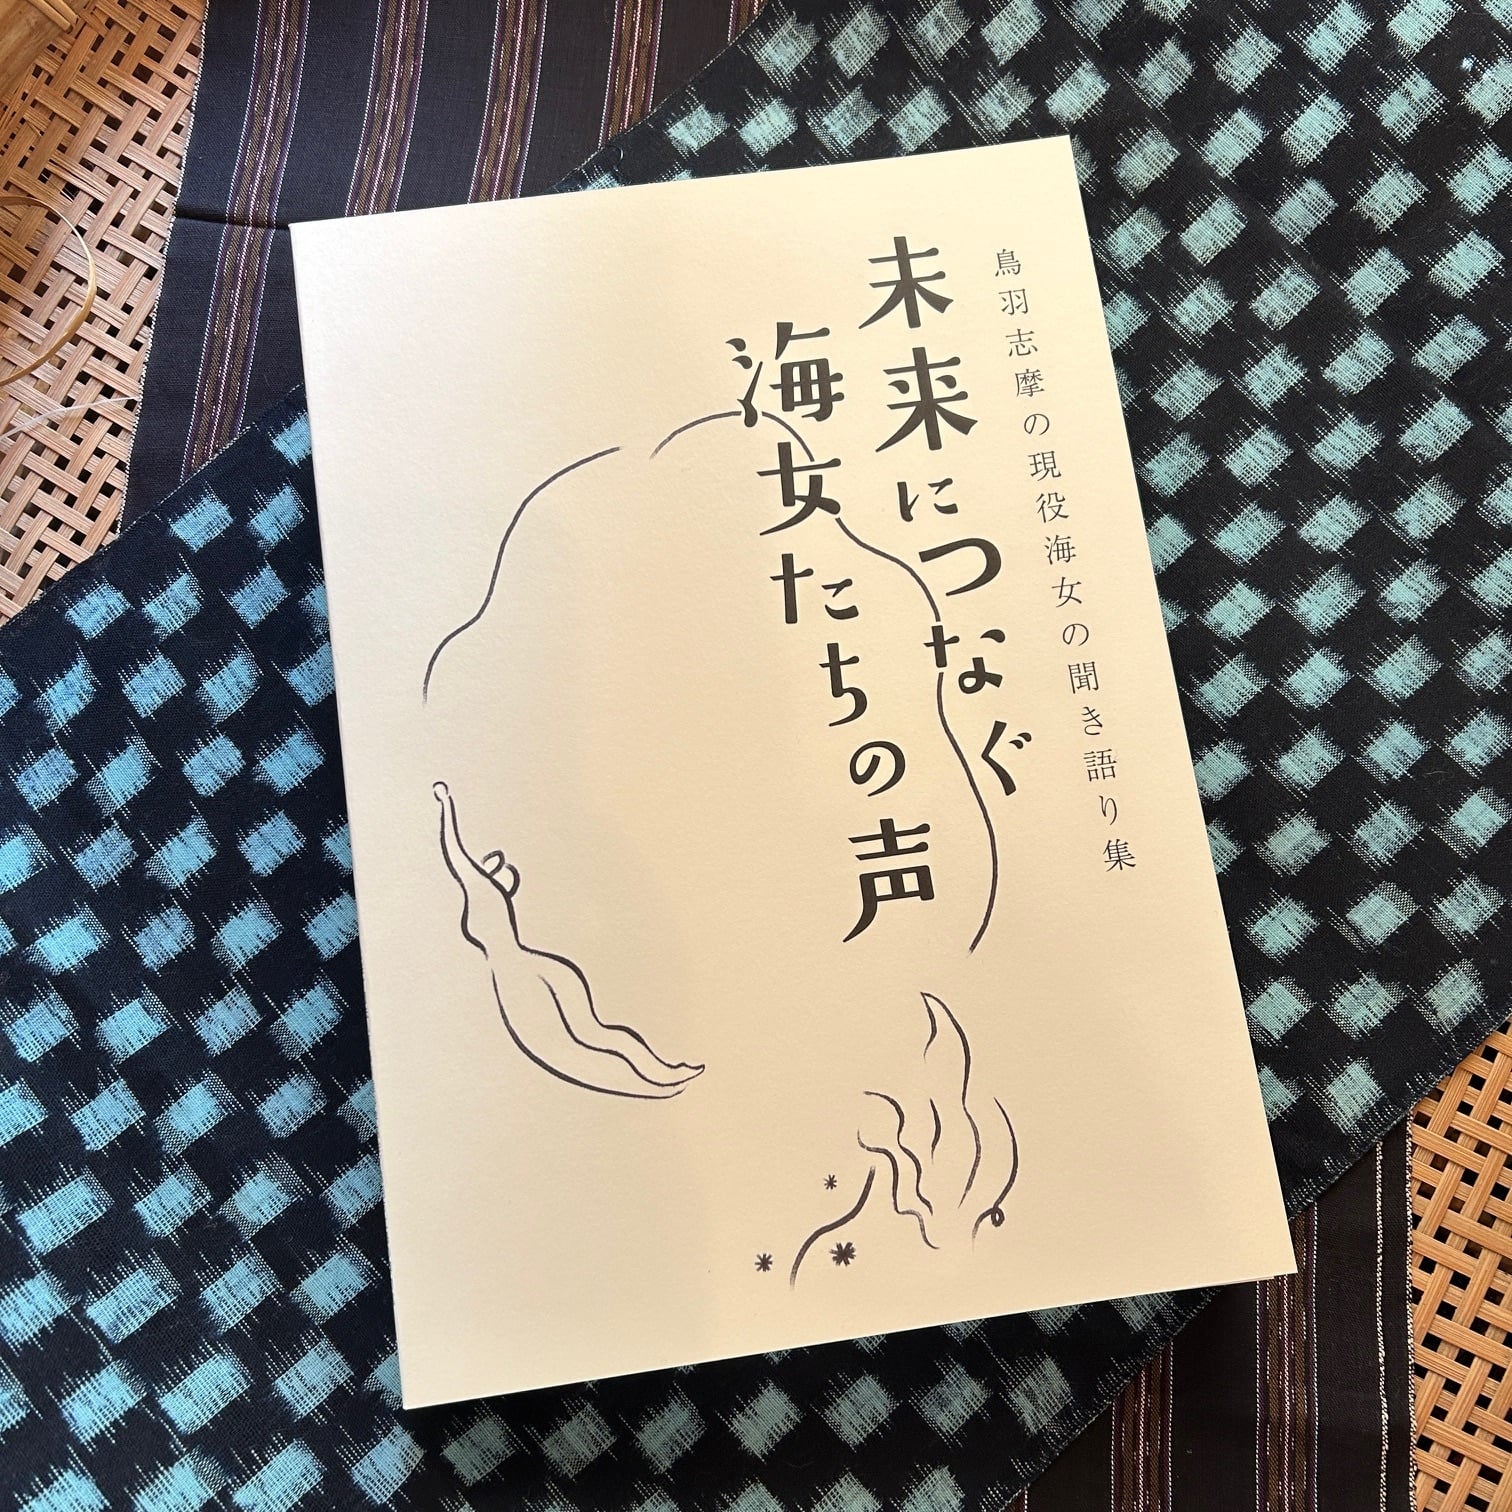 鳥羽志摩の現役海女の聞き語り集
未来につなぐ
海女たちの声